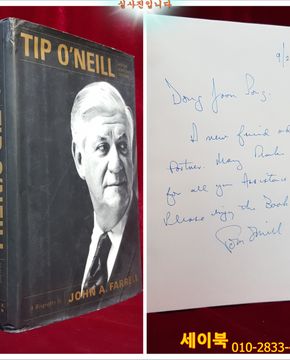 실사진입니다
TIP O'NEILL
A Biography by JOHN A. FARRELL
TIP O'NEILL
9/2
Dong Joon Song.
A new friend
Partner. Many Thank
for all your Assistance
Please enjoy the Book
세이북
010-2833-